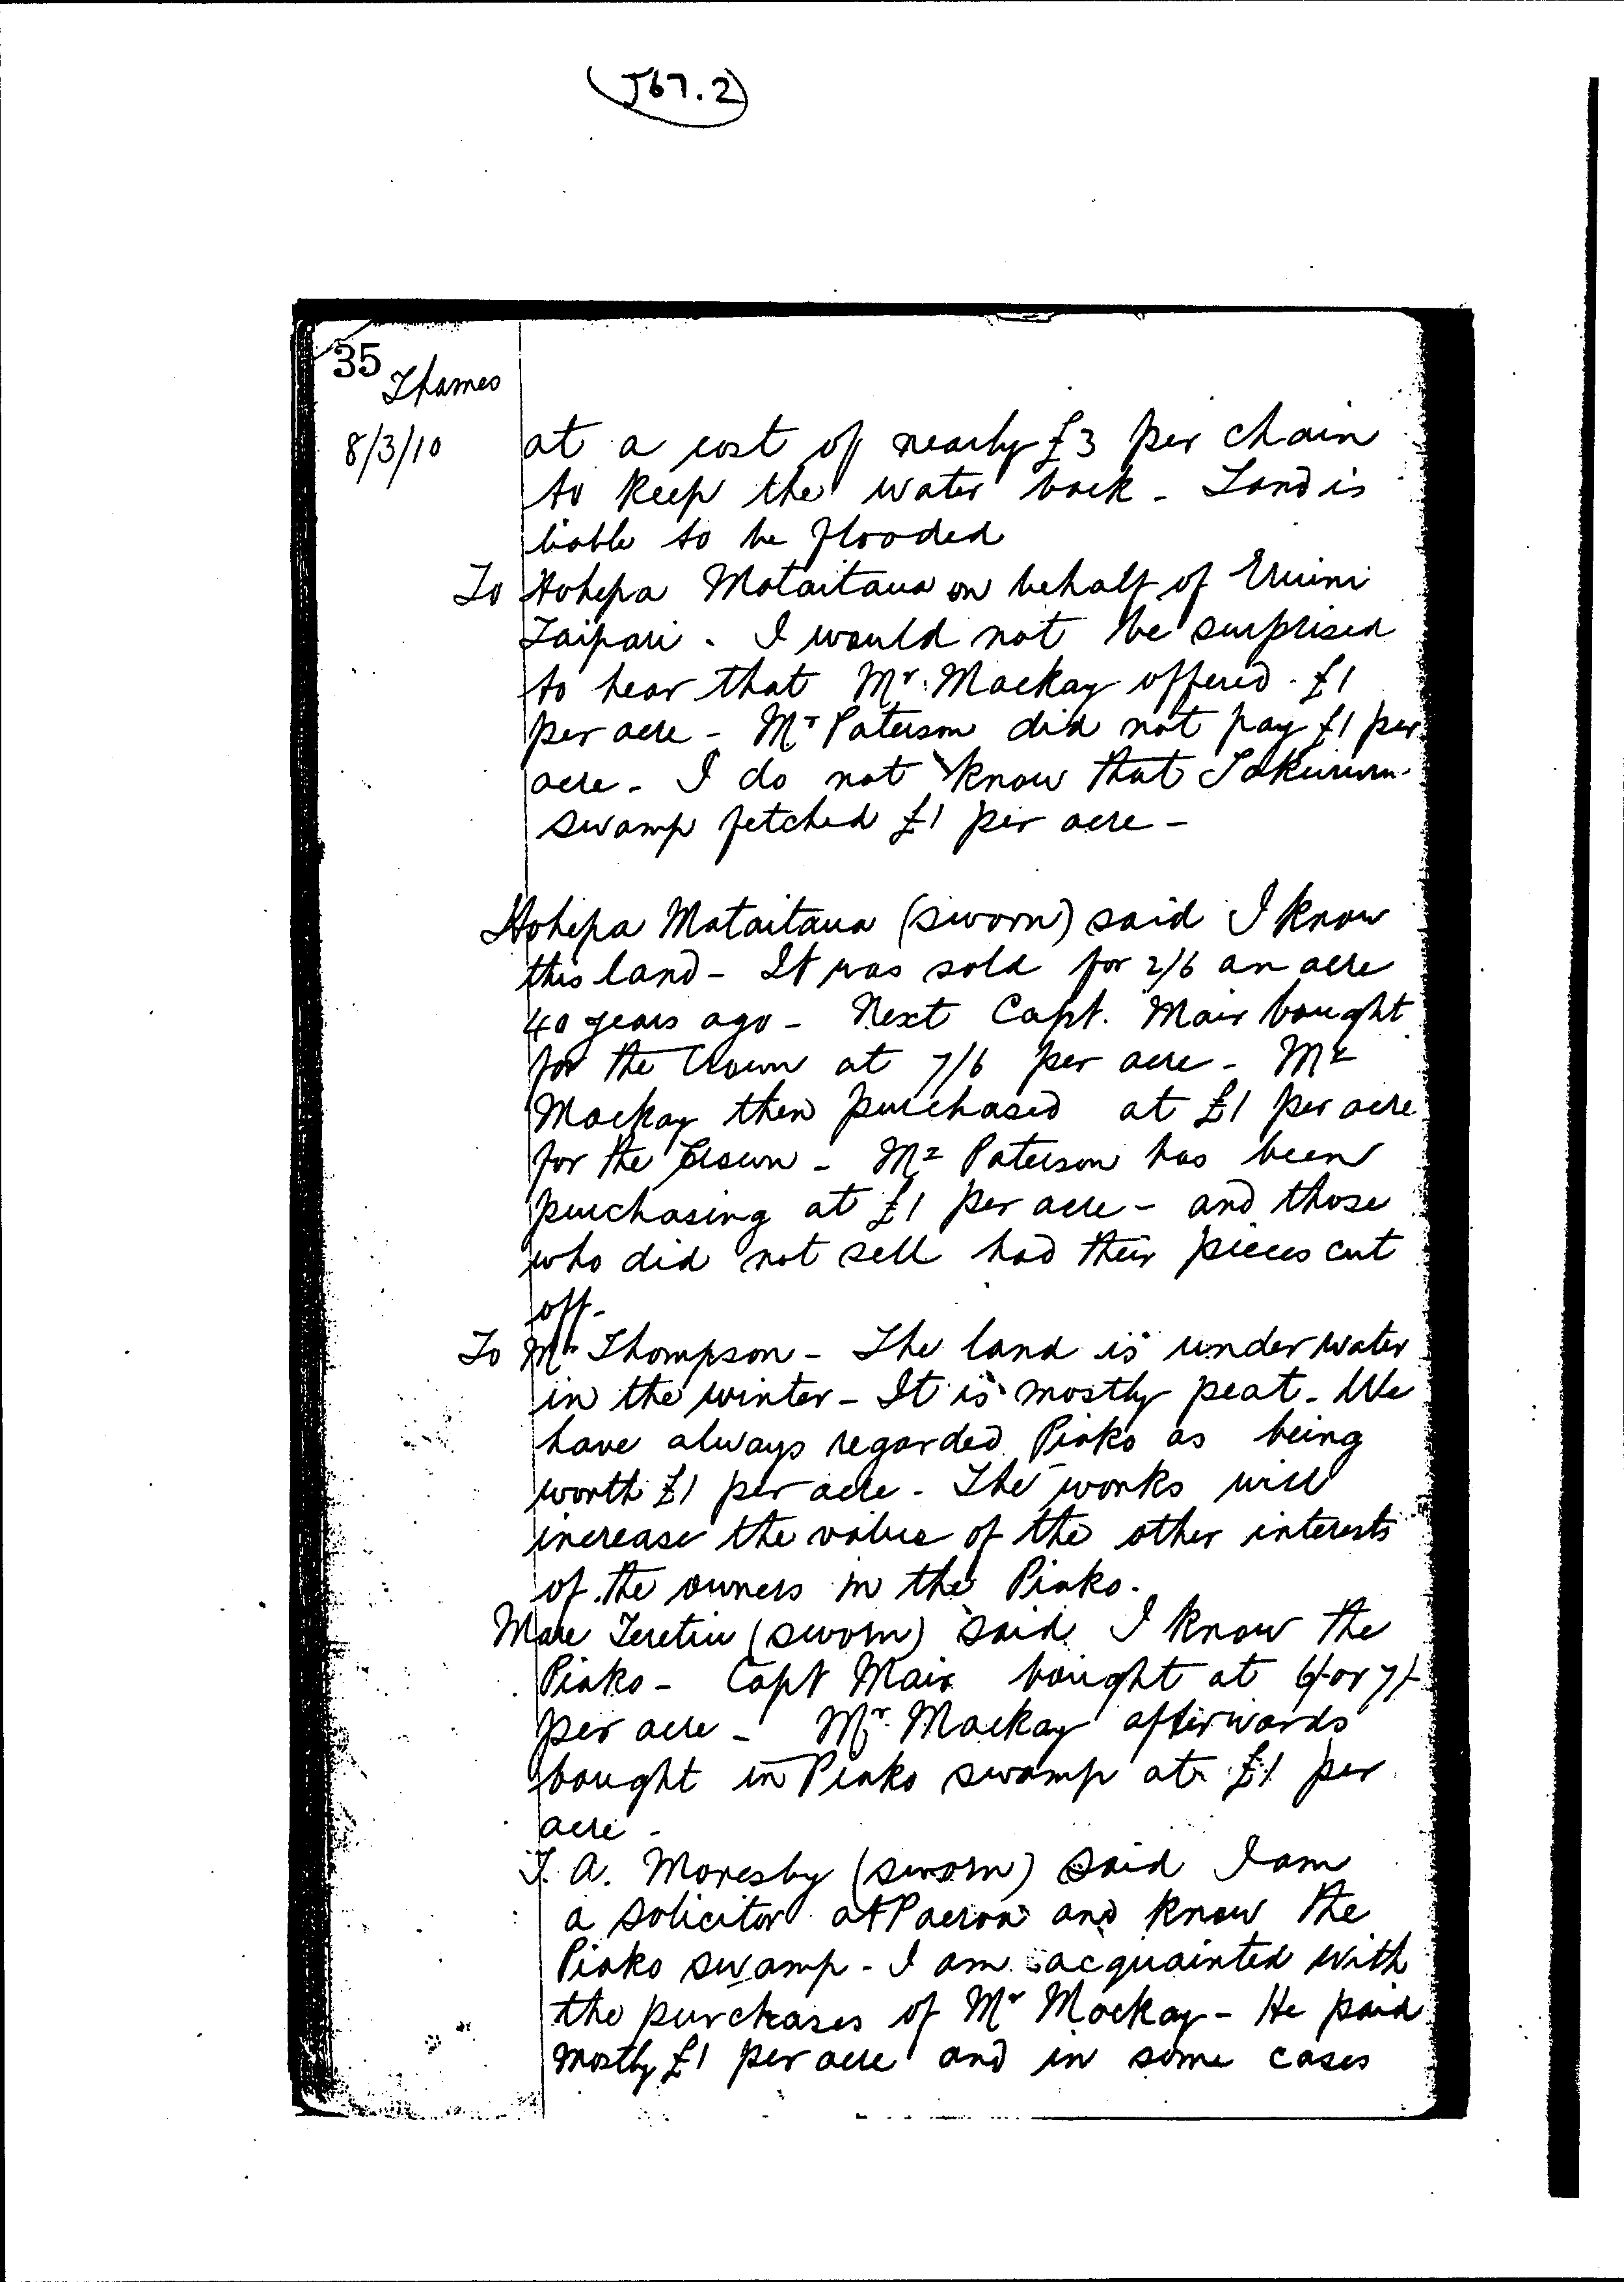 J67.2
35 Thames
8/3/10
at a cost of nearly £3 per chain
to keep the water back - Land is
liable to be flooded
To Hohepa Mataitaua on behalf of Eruini
Taipari. I would not be surprised
to hear that Mr. Mackay offered £1
per acre - Mr Paterson did not pay £1 per
acre - I do not know that
swamp fetched £1 per acre -
Hohepa Mataitaua (sworn) said I know
this land - It was sold for 2/6 an acre
40 years ago - Next Capt. Mair bought
for the Crown at 7/6 per acre - Mr
Mackay then purchased at £1 per acre
for the Crown - Mr Paterson has been
purchasing at £1 per acre - and those
who did not sell had their pieces cut
off -
To Mr Thompson - The land is under water
in the winter - It is mostly peat - We
have always regarded Piako as being
worth £1 per acre - The works will
increase the value of the other interests
of the owners in the Piako.
Mare Teretiu (sworn) said I know the
Piako - Capt Mair bought at 6/- or 7/-
per acre - Mr. Mackay afterwards
bought in Piako swamp at £1 per
acre -
T. A. Moresby (sworn) said I am
a solicitor at Paeroa and know the
Piako swamp - I am acquainted with
the purchases of Mr Mackay - He paid
mostly £1 per acre and in some cases